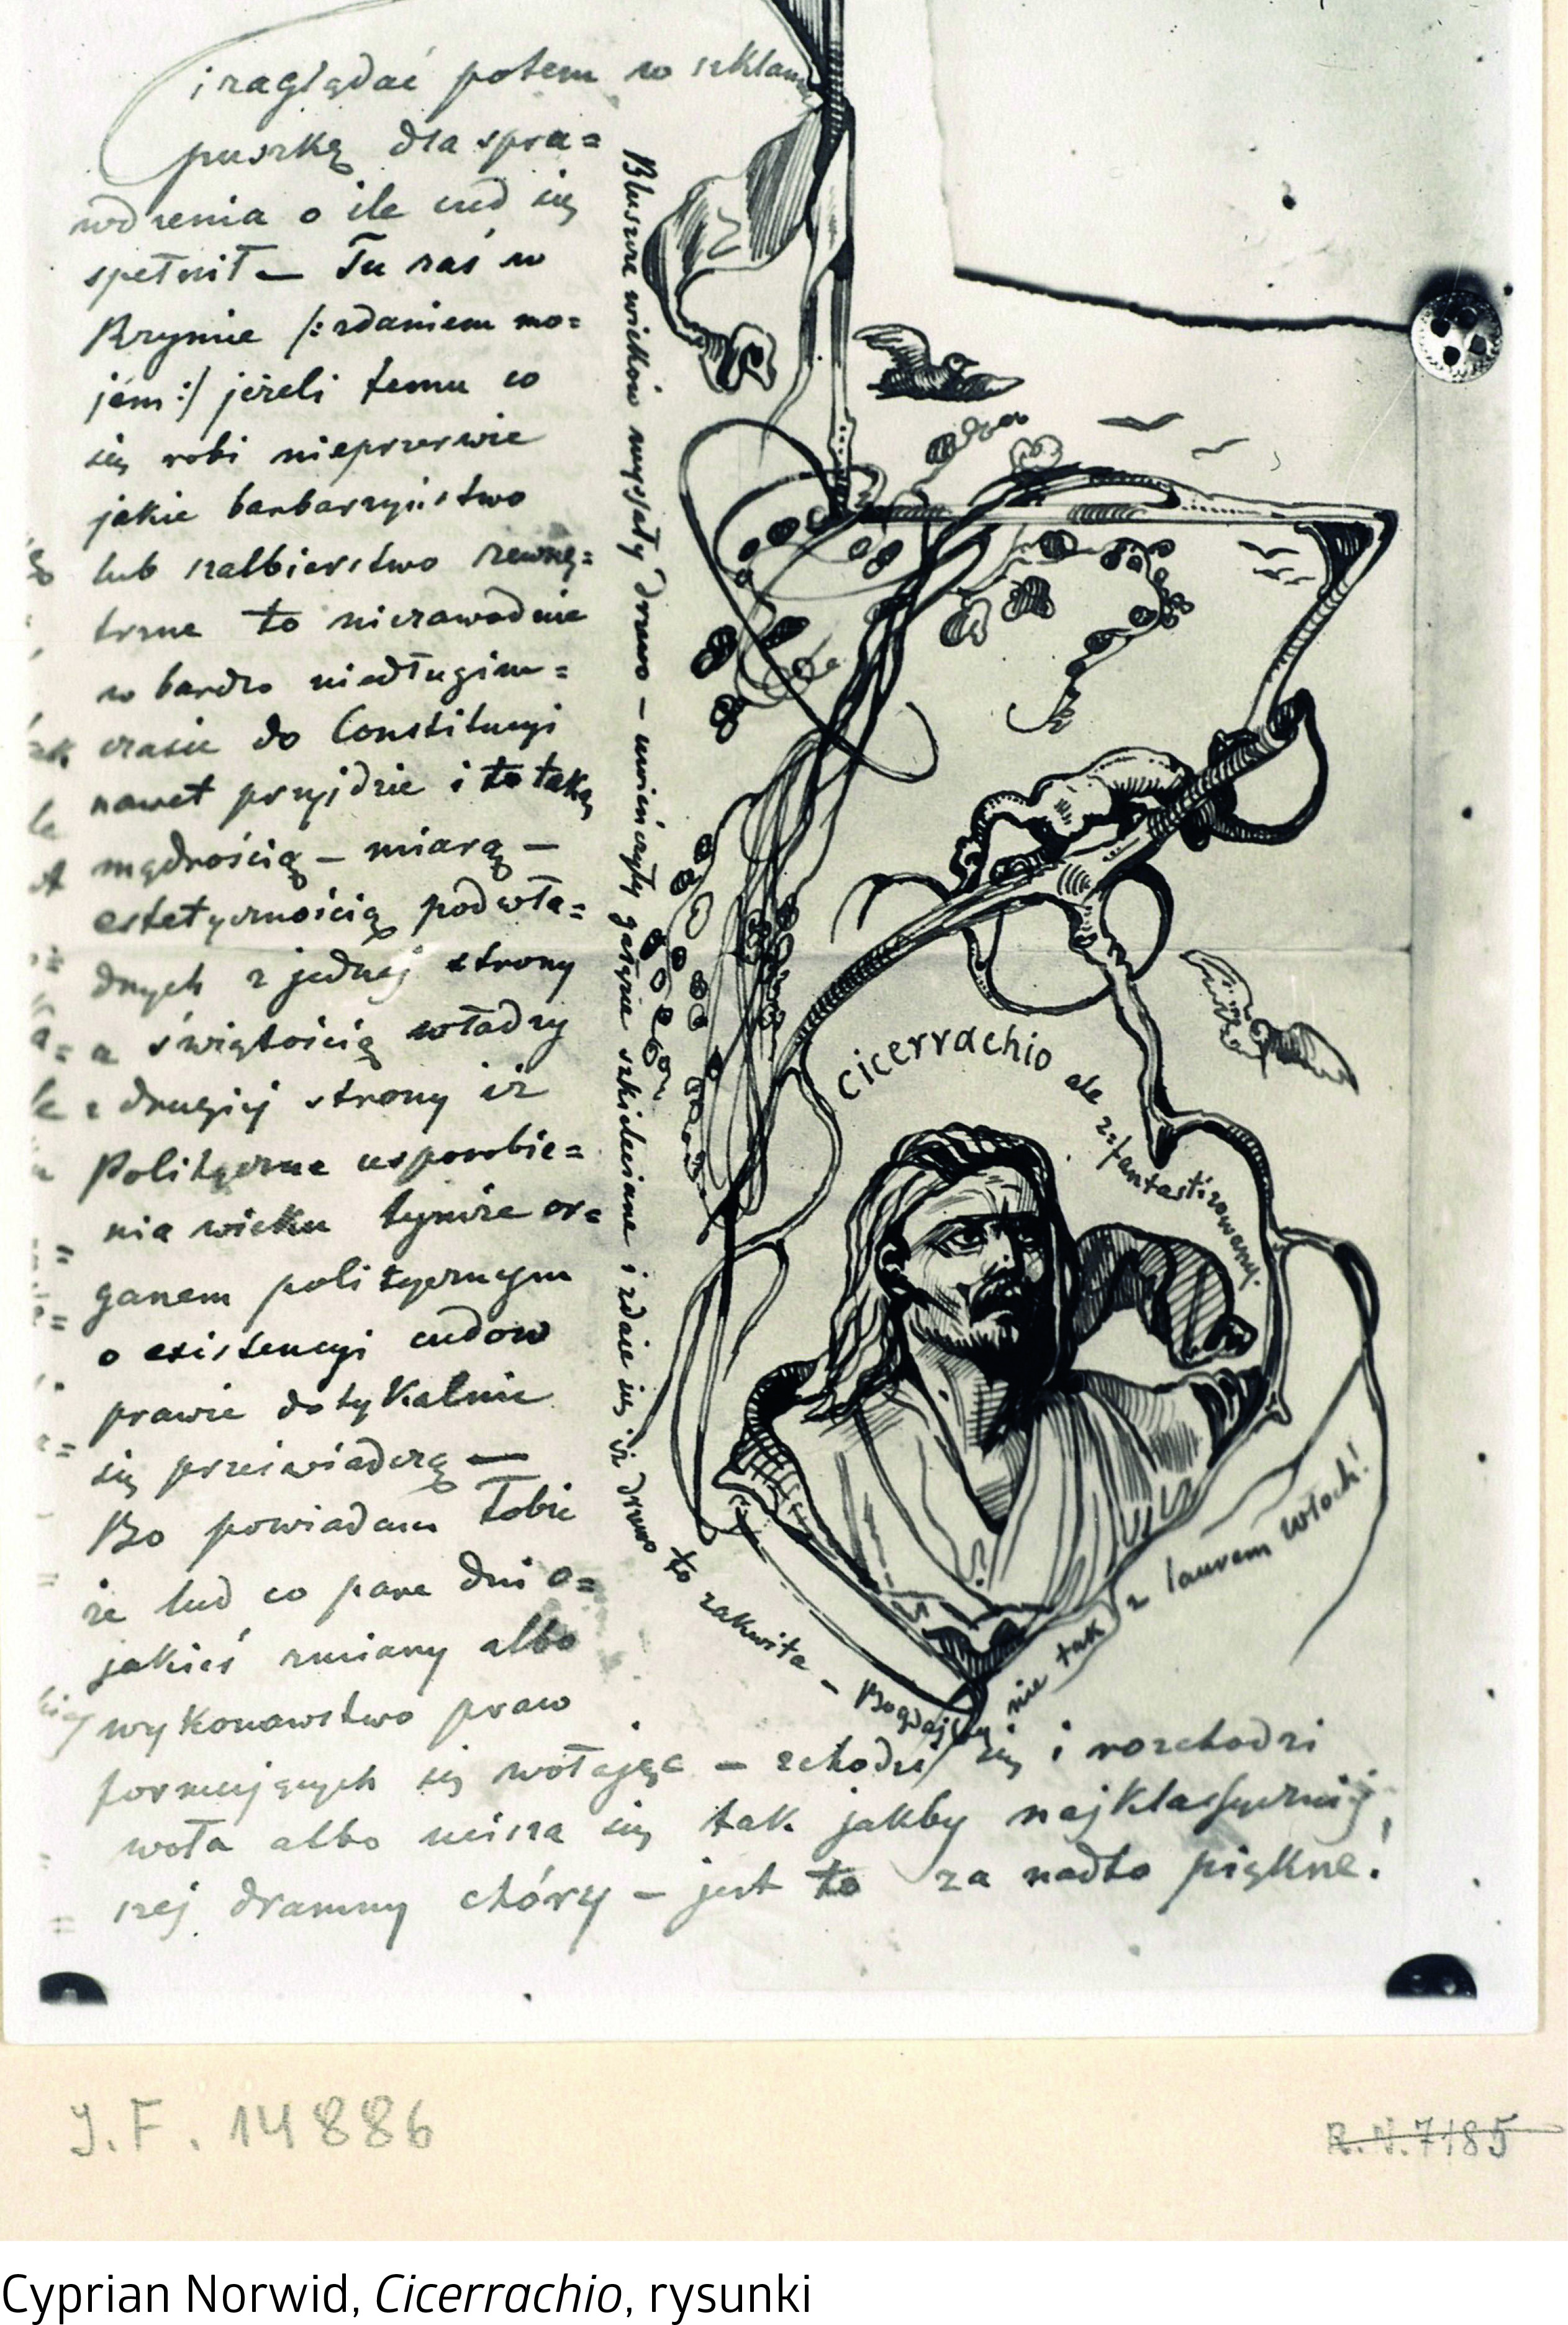 i zaglądać potem w szklanną
puszkę dla spra=
wdzenia o ile cud się
spełnił — Tu zaś w
Rzymie /: zdaniem mo=
jém :/ jeżeli temu co
się robi nieprzerwie
jakie barbarzyństwo
lub szalbierstwo zewnę=
trzne to niezawodnie
w bardzo niedługim=
czasie do Constitucyi
nawet przyjdzie i to taką
mądrością — miarą —
estetycznością podwła=
dnych z jednej strony
a świątością władzy
z drugiej strony iż
Polityczne usposobie=
nia wieku tymże or=
ganem politycznym
o existencyi cudów
prawie dotykalnie
się przeświadczą —
Bo powiadam Tobie
że lud co parę dni o=
jakieś zmiany albo
wykonawstwo praw
formujących się wołając — schodzi się i rozchodzi
woła albo ucisza się tak jakby najklassyczniej
szej dramy chóry — jest to za nadto piękne!
Bluszcze wieków wyssały drzewo — uwieńczyły gałęzie szkieleciane i zdaie się iż drzewo to zakwita — Bogdajby nie tak z laurem włoch!
Cicerrachio ale z:fantastizowany.
J.F. 14886
R.N.7185
Cyprian Norwid, Cicerrachio, rysunki